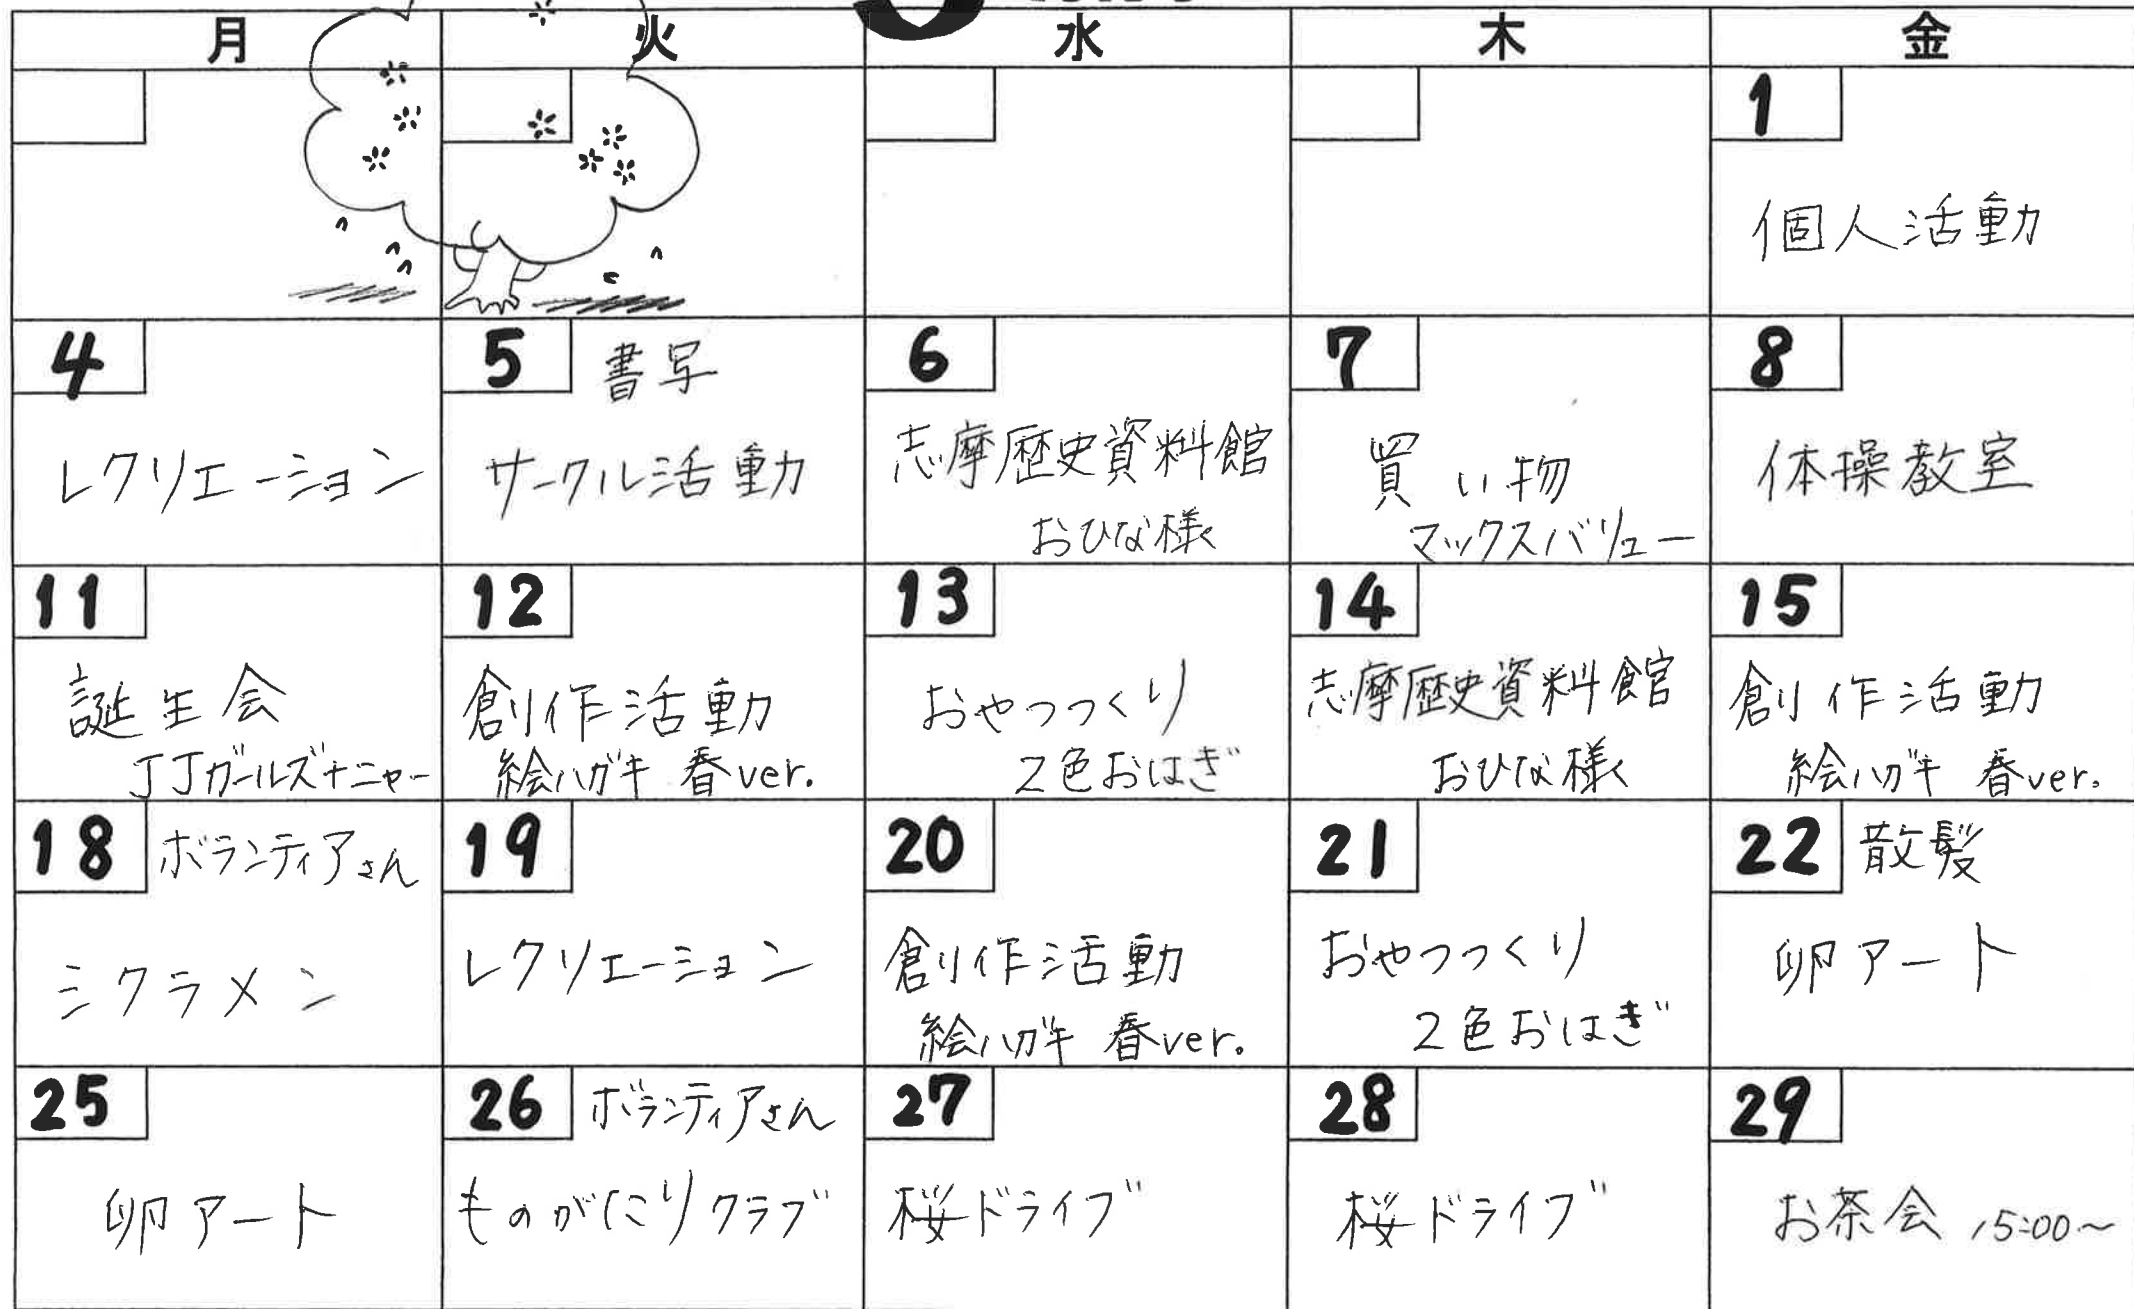 月 火 水 木 金
1
個人活動
4
レクリエーション
5 書写
サークル活動
6
志摩歴史資料館
おひな様
7
買い物
マックスバリュー
8
体操教室
11
誕生会
JJガールズ+ニャー
12
創作活動
絵ハガキ 春ver.
13
おやつつくり
2色おはぎ
14
志摩歴史資料館
おひな様
15
創作活動
絵ハガキ 春ver.
18 ボランティアさん
シクラメン
19
レクリエーション
20
創作活動
絵ハガキ 春ver.
21
おやつつくり
2色おはぎ
22 散髪
卵アート
25
卵アート
26 ボランティアさん
ものがたりクラブ
27
桜ドライブ
28
桜ドライブ
29
お茶会 15:00~